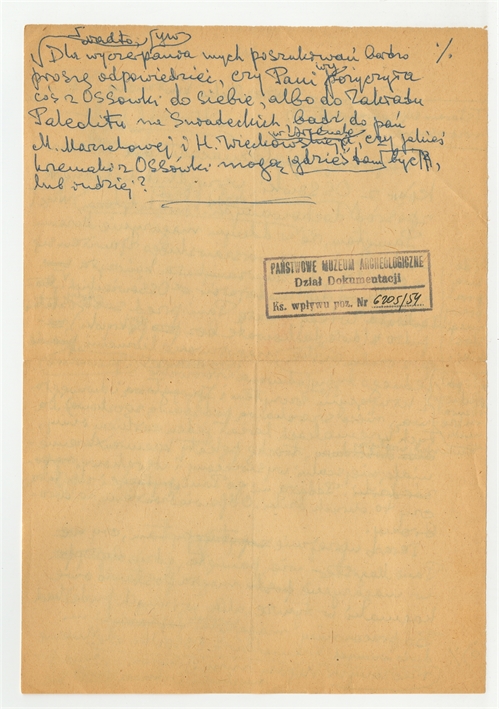 ./.
Dla wyczerpania mych poszukiwań bardzo
proszę odpowiedzieć, czy Pani wypożyczyła
coś z Ossówki do siebie, albo do Zakładu
Paleolitu na Swadeckich bądź do pań
M. Marzałowej i H. Więckowskiej, czy jakieś
krzemaki z Ossówki mogą gdzieś tam być,
lub indziej?
PAŃSTWOWE MUZEUM ARCHEOLOGICZNE
Dział Dokumentacji
Ks. wpływu poz. Nr 6205/54